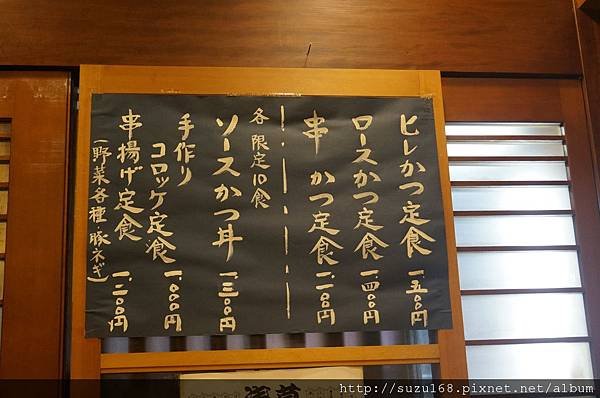 ヒレかつ定食 一、五〇〇円
ロースかつ定食 一、四〇〇円
串かつ定食 一、二〇〇円
各限定10食
ソースかつ丼 一、三〇〇円
手作り
コロッケ定食 一、〇〇〇円
串揚げ定食 一、二〇〇円
(野菜各種・豚ネギ)
http://suzu168.pixnet.net/album